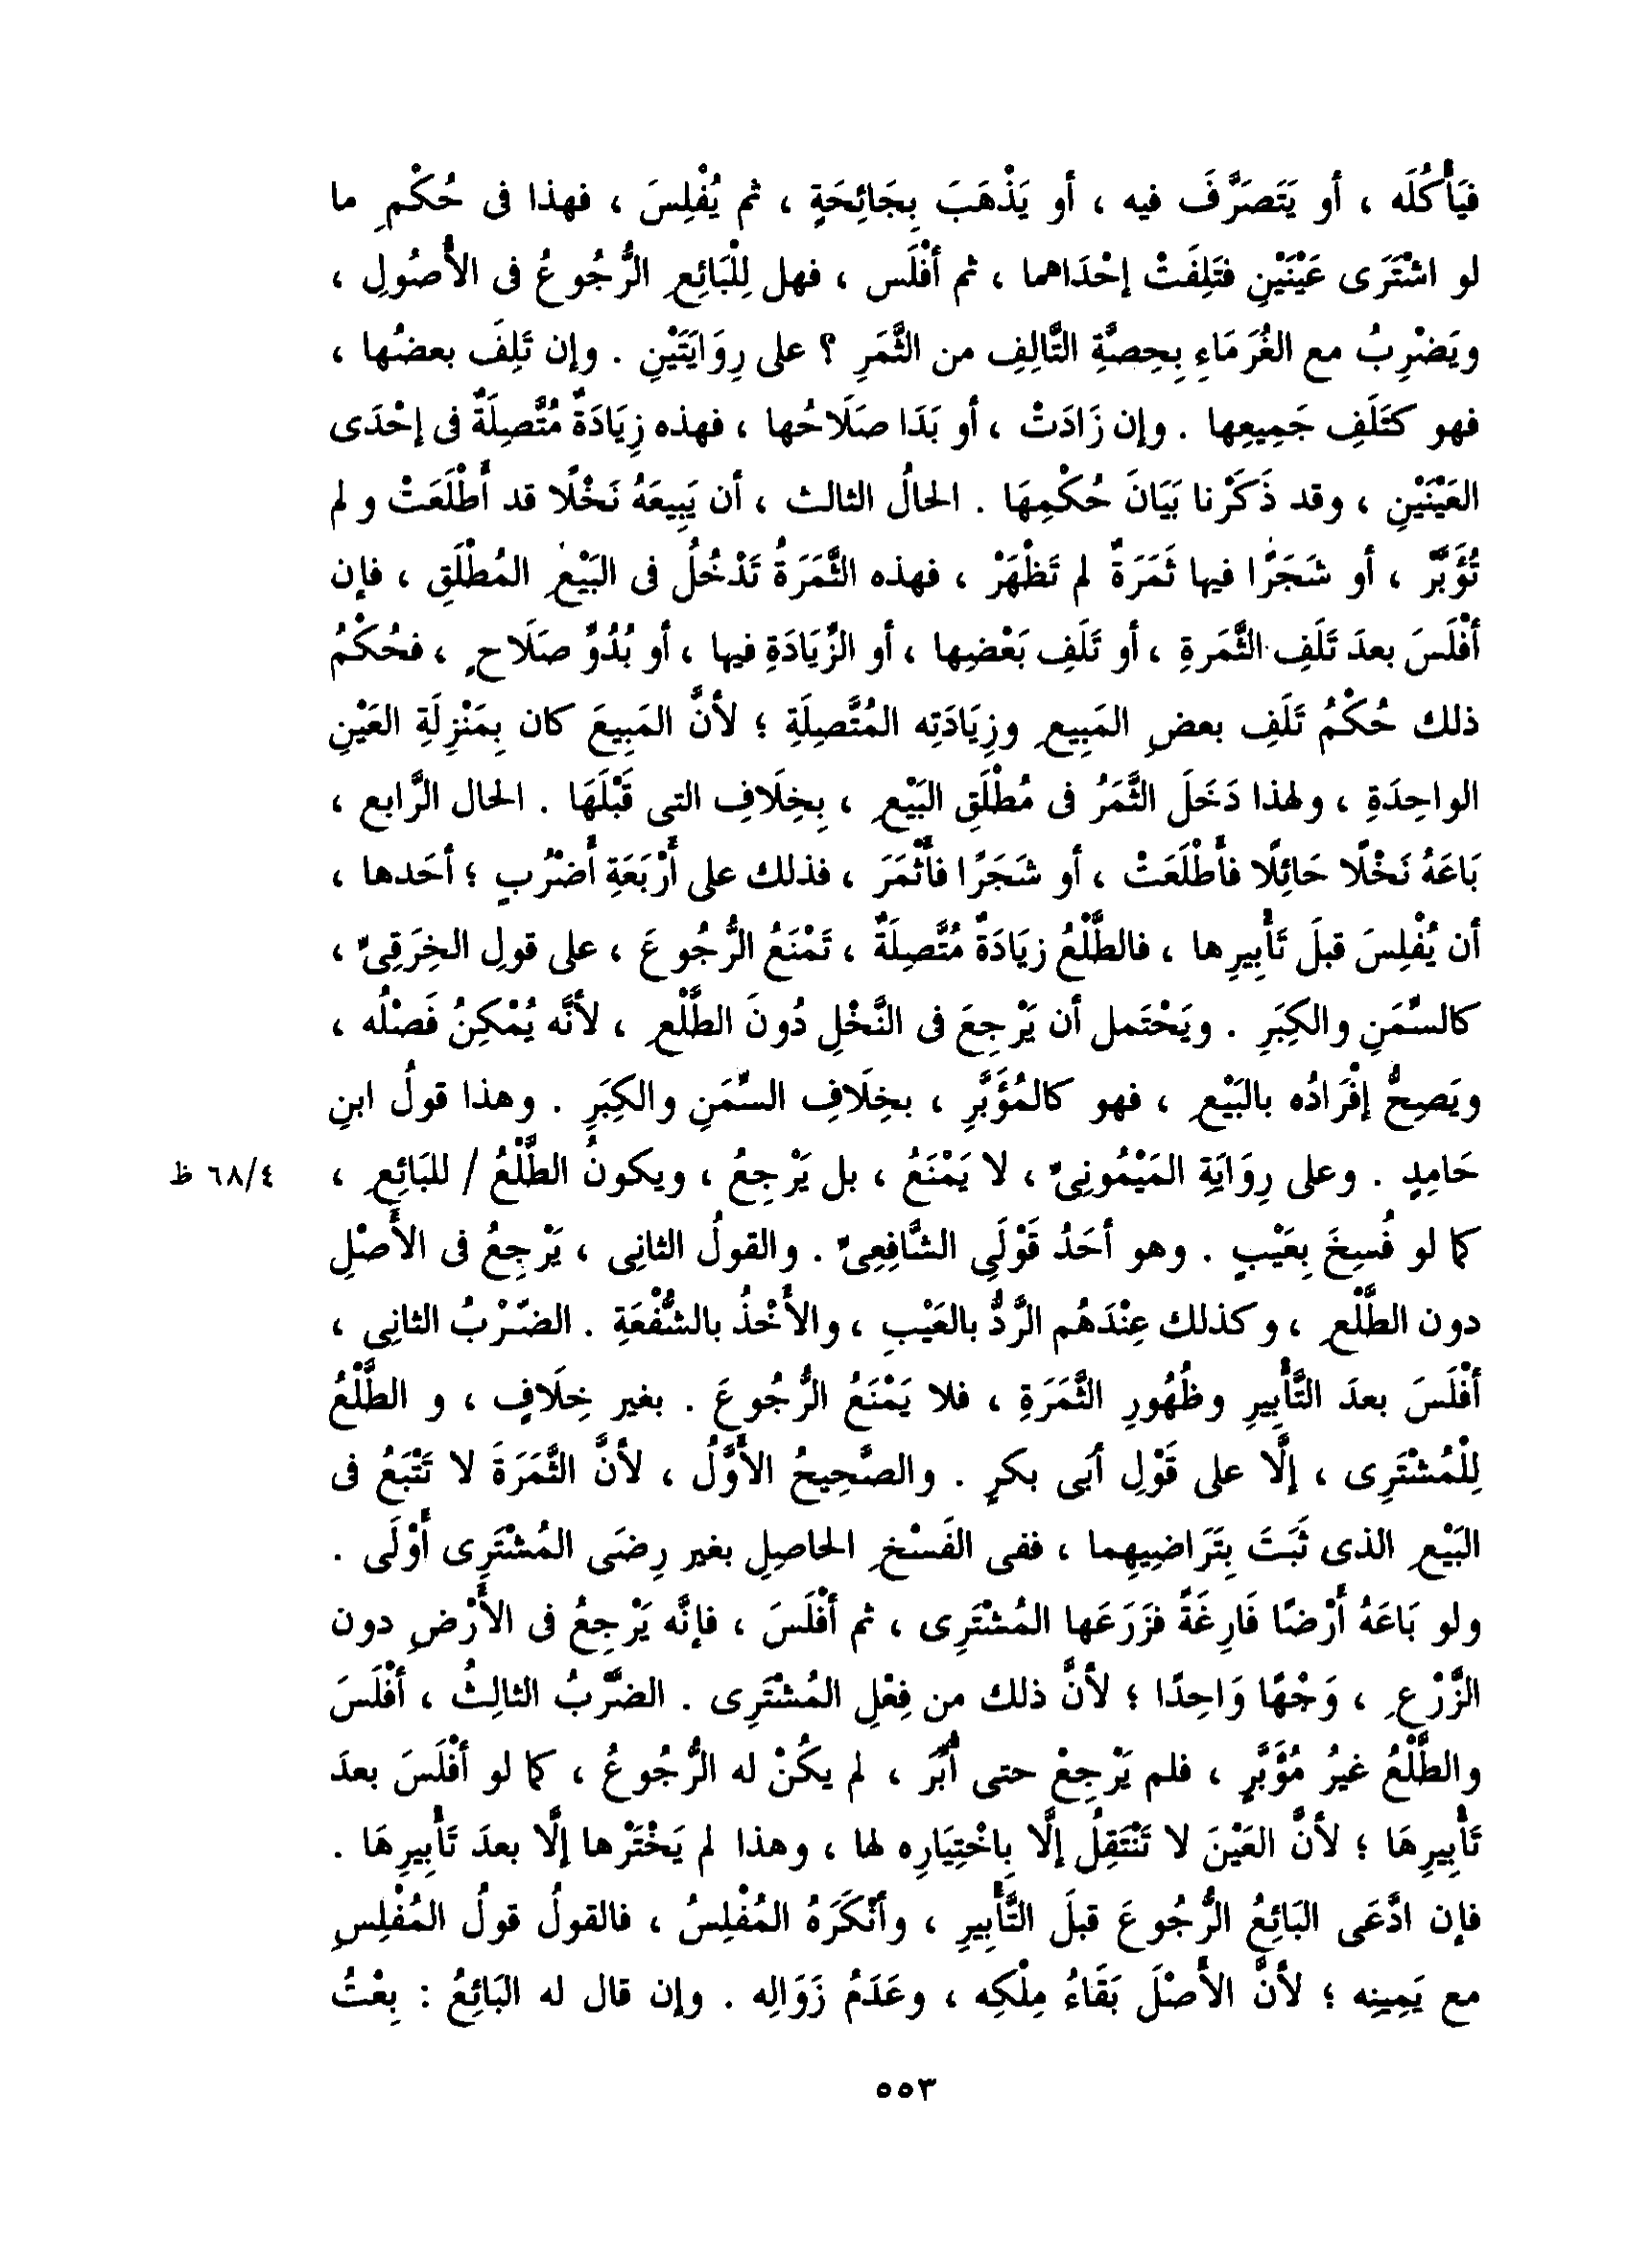 فيَأْكُلَه ، أو يَتَصَرَّفَ فيه ، أو يَذْهَبَ بِجَائِحَةٍ ، ثم يُفْلِسَ ، فهذا فى حُكْمِ ما
لو اشْتَرَى عَيْنَيْنِ فتَلِفَتْ إحْدَاهما ، ثم أفْلَس ، فهل لِلْبَائِعِ الرُّجُوعُ فى الأُصُولِ ،
ويَضْرِبُ مع الغُرَمَاءِ بِحِصَّةِ التَّالِفِ من الثَّمَرِ ؟ على رِوَايَتَيْنِ . وإن تَلِفَ بعضُها ،
فهو كتَلَفِ جَمِيعِها . وإن زَادَتْ ، أو بَدَا صَلَاحُها ، فهذه زِيَادَةٌ مُتَّصِلَةٌ فى إحْدَى
العَيْنَيْنِ ، وقد ذَكَرْنا بَيَانَ حُكْمِهَا . الحالُ الثالث ، أن يَبِيعَهُ نَخْلًا قد أَطْلَعَتْ و لم
تُؤَبَّرْ ، أو شَجَرًا فيها ثَمَرَةٌ لم تَظْهَرْ ، فهذه الثَّمَرَةُ تَدْخُلُ فى البَيْعِ المُطْلَقِ ، فإن
أفْلَسَ بعدَ تَلَفِ الثَّمَرةِ ، أو تَلَفِ بَعْضِها ، أو الزِّيَادَةِ فيها ، أو بُدُوِّ صَلَاحٍ ، فحُكْمُ
ذلك حُكْمُ تَلَفِ بعضِ المَبِيعِ وزِيَادَتِه المُتَّصِلَةِ ؛ لأنَّ المَبِيعَ كان بِمَنْزِلَةِ العَيْنِ
الواحِدَةِ ، ولهذا دَخَلَ الثَّمَرُ فى مُطْلَقِ البَيْعِ ، بِخِلَافِ التى قَبْلَهَا . الحال الرَّابع ،
بَاعَهُ نَخْلًا حَائِلًا فأَطْلَعَتْ ، أو شَجَرًا فأَثْمَرَ ، فذلك على أَرْبَعَةِ أَضْرُبٍ ؛ أحَدها ،
أن يُفْلِسَ قبلَ تَأْبِيرِها ، فالطَّلْعُ زيَادَةٌ مُتَّصِلَةٌ ، تَمْنَعُ الرُّجُوعَ ، على قولِ الخِرَقِىِّ ،
كالسِّمَنِ والكِبَرِ . ويَحْتَمل أن يَرْجِعَ فى النَّخْلِ دُونَ الطَّلْعِ ، لأنَّه يُمْكِنُ فَصْلُه ،
ويَصِحُّ إفْرَادُه بالبَيْعِ ، فهو كالمُؤَبَّرِ ، بخِلَافِ السِّمَنِ والكِبَرِ . وهذا قولُ ابنِ
حَامِدٍ . وعلى رِوَايَةِ المَيْمُونِىِّ ، لا يَمْنَعُ ، بل يَرْجِعُ ، ويكونُ الطَّلْعُ / للبَائِعِ ، ٦٨/٤ ظ
كما لو فُسِخَ بِعَيْبٍ . وهو أحَدُ قَوْلَىِ الشَّافِعِىِّ . والقولُ الثانِى ، يَرْجِعُ فى الأَصْلِ
دون الطَّلْعِ ، وكذلك عِنْدَهُم الرَّدُّ بالعَيْبِ ، والأَخْذُ بالشُّفْعَةِ . الضَّرْبُ الثانِى ،
أفْلَسَ بعدَ التَّأْبِيرِ وظُهُورِ الثَّمَرَةِ ، فلا يَمْنَعُ الرُّجُوعَ . بغير خِلَافٍ ، و الطَّلْعُ
لِلْمُشْتَرِى ، إلَّا على قَوْلِ أبى بكرٍ . والصَّحِيحُ الأَوَّلُ ، لأنَّ الثَّمَرَةَ لا تَتْبَعُ فى
البَيْعِ الذى ثَبَتَ بِتَرَاضِيهِما ، ففى الفَسْخِ الحاصِلِ بغير رِضَى المُشْتَرِى أَوْلَى .
ولو بَاعَهُ أَرْضًا فَارِغَةً فزَرَعَها المُشْتَرِى ، ثم أفْلَسَ ، فإنَّه يَرْجِعُ فى الأَرْضِ دون
الزَّرْعِ ، وَجْهًا وَاحِدًا ؛ لأنَّ ذلك من فِعْلِ المُشْتَرِى . الضَّرْبُ الثالِثُ ، أفْلَسَ
والطَّلْعُ غيرُ مُؤَبَّرٍ ، فلم يَرْجِعْ حتى أُبِّرَ ، لم يكُنْ له الرُّجُوعُ ، كما لو أفْلَسَ بعدَ
تَأْبِيرِهَا ؛ لأنَّ العَيْنَ لا تَنْتَقِلُ إلَّا بِاخْتِيَارِه لها ، وهذا لم يَخْتَرْها إلَّا بعدَ تَأْبِيرِهَا .
فإن ادَّعَى البَائِعُ الرُّجُوعَ قبلَ التَّأْبِيرِ ، وأنْكَرَهُ المُفْلِسُ ، فالقولُ قولُ المُفْلِسِ
مع يَمِينِه ؛ لأنَّ الأَصْلَ بَقَاءُ مِلْكِه ، وعَدَمُ زَوَالِه . وإن قال له البَائِعُ : بِعْتُ
٥٥٣